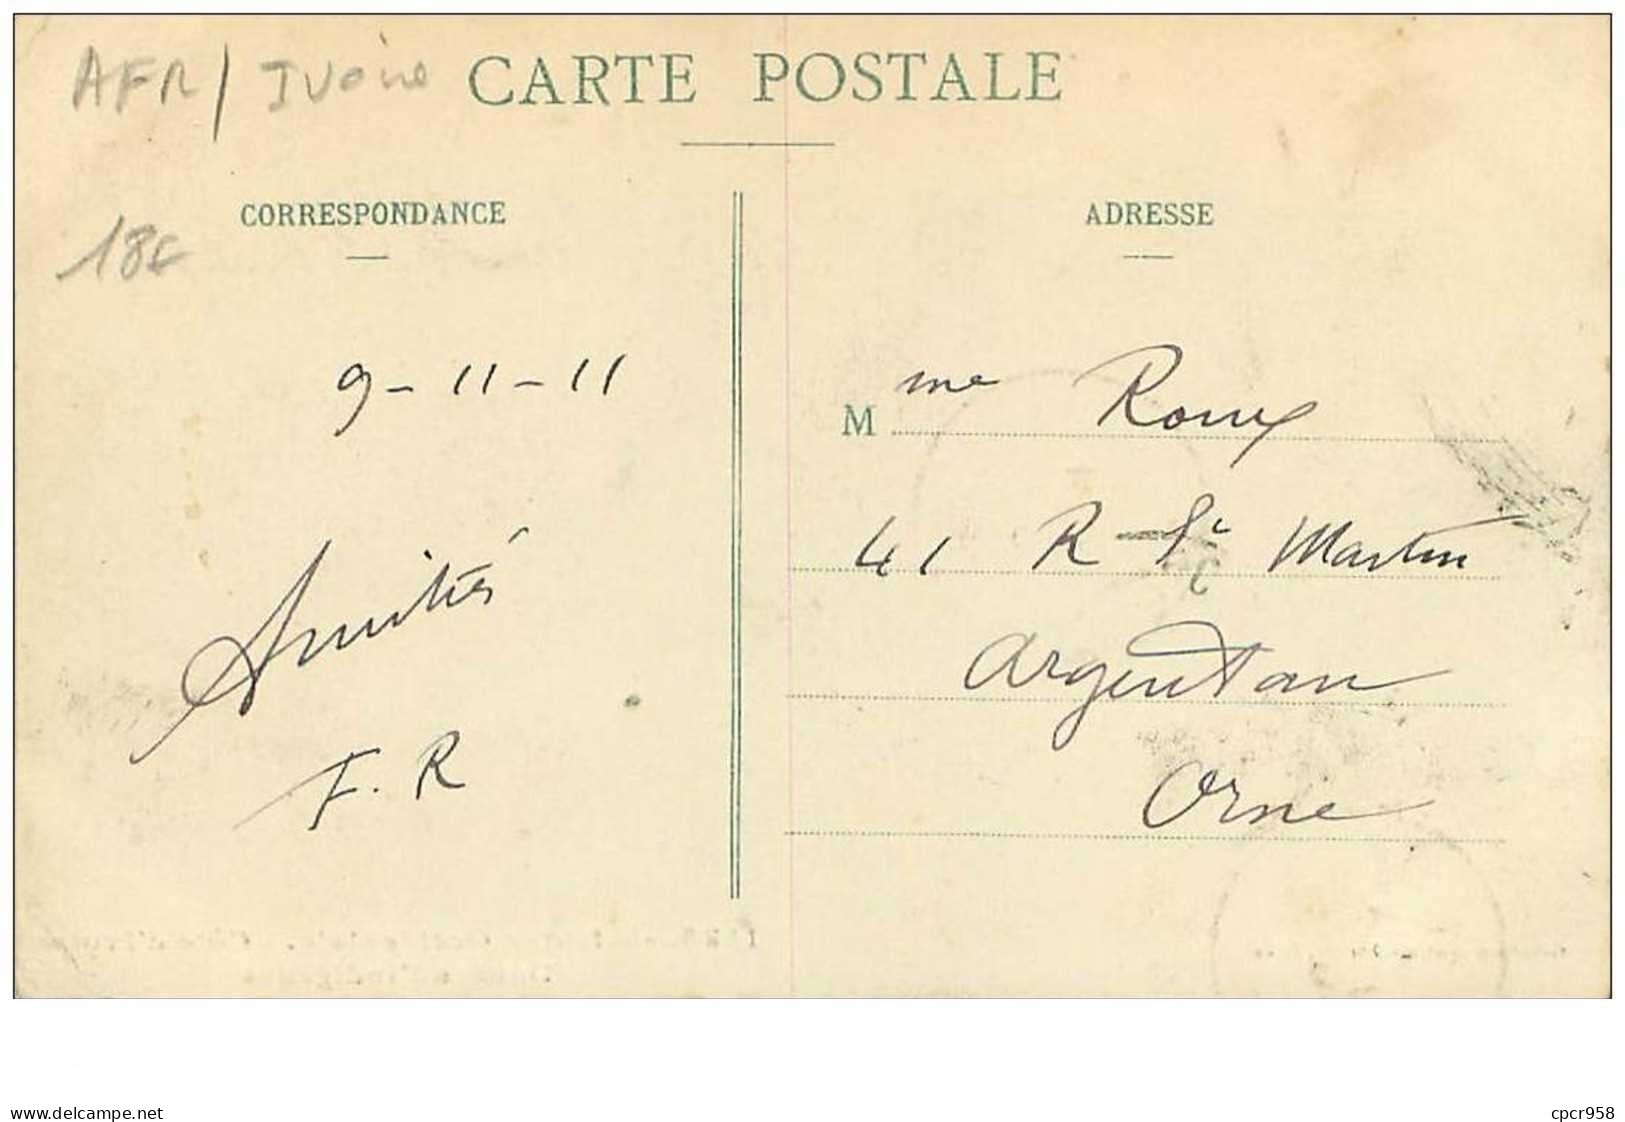 AFR / Ivoire
CARTE POSTALE
CORRESPONDANCE
ADRESSE
18€
9-11-11
Amitiés
F. R
Mme Roux
41 R St Martin
Argentan
Orne
www.delcampe.net
cpcr958